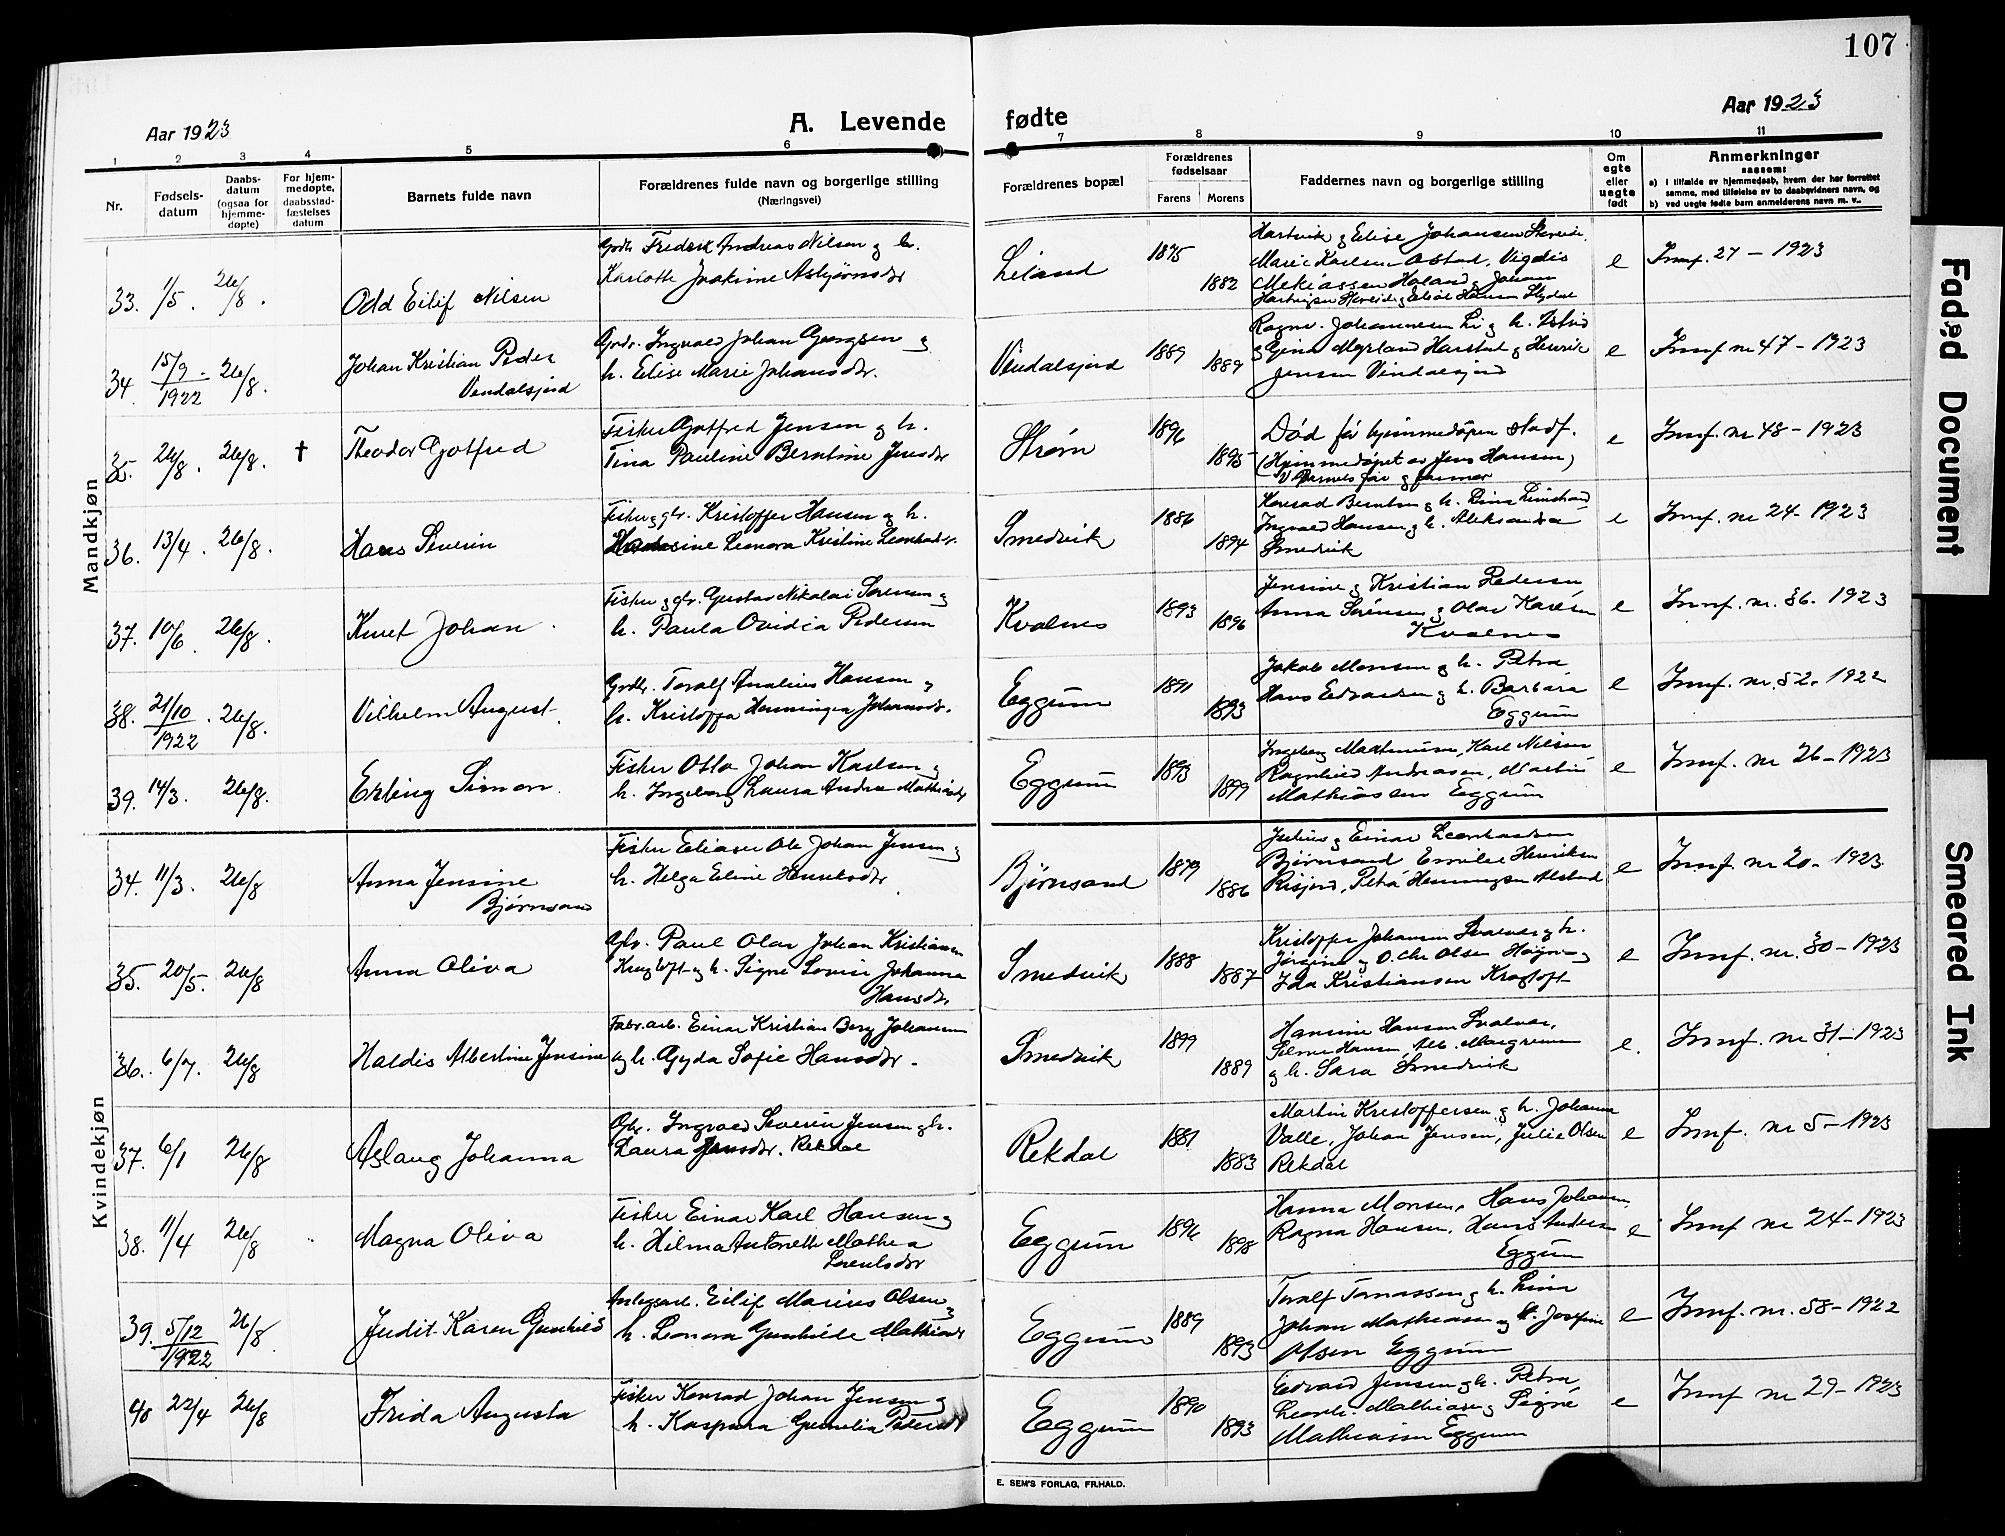 107
Aar 1923
A. Levende fødte
Aar 1923
1 2 3 4 5 6 7 8 9 10 11
Nr.
Fødsels-
datum
Daabs-
datum
(ogsaa for
hjemme-
døpte)
For hjem-
medøpte,
daabsstad-
fæstelses
datum
Barnets fulde navn
Forældrenes fulde navn og borgerlige stilling
(Næringsvei)
Forældrenes bopæl
Forældrenes
fødselsaar
Farens Morens
Faddernes navn og borgerlige stilling
Om
egte
eller
uegte
født
Anmerkninger
saasom:
a) i tilfælde av hjemmedaab, hvem der har forrettet
samme, med tilføielse av to daabsvidners navn, og
b) ved uegte fødte barn anmelderens navn m. v..
Mandkjøn
33. 1/5. 26/8. Odd Eilif Nilsen
Gndr. Fredrik Andreas Nilsen og h.
Karlotte Joakime Asbjørnsdtr
Leland 1875 1882
Hartvik og Elise Johansen
Marie Karlsen Ostad, Vigdis
Mekiassen Holand, Johan
e Innf. 27 – 1923
34. 15/9 1922 26/8. Johan Kristian Peder
Vendalsjord
Gndr. Ingvald Johan Georgsen og
h. Elise Marie Johansdtr.
Vendalsjord 1889 1889
Ragnv. Johannesen Li og h. Astrid
og Gina Myrland Harstad og Henrik
Jensen Vindalsjord
e Innf. nr 47 – 1923
35. 26/8. 26/8. † Theodor Gotfred
Fisker Gotfred Jensen og h.
Tina Pauline Berntine Jensdtr
Strøm 1896 1895
Død før hjemmedåpen stadf.
(Hjemmedøpt av Jens Hansen)
V. Barnets far og farmor
e Innf. nr 48 – 1923
36. 13/4. 26/8. Hans Severin
Fisker og gbr. Kristoffer Hansen og h.
Leonora Kristine Leonhardsdtr.
Smedvik 1886 1894
Konrad Berntsen og h. Lina
Ingvald Hansen og h. Aleksandra
Smedvik
e Innf. nr 24 – 1923
37. 10/6. 26/8. Knut Johan.
Fisker og gbr. Gustav Nikolai Sørensen og
h. Paula Ovidia Pedersen
Kvalnes 1893 1896
Jensine og Kristian Pedersen
Anna Sørensen og Olav Karlsen
Kvalnes
e Innf. nr. 36. 1923
38. 21/10 1922 26/8. Vilhelm August.
Gndr. Toralf Analius Hansen og
h. Kristoffa Henningea Johansdtr.
Eggum 1891 1893
Jakob Monsen og h. Petra
Hans Edvardsen og h. Barbara
Eggum
e Innf. nr. 52. 1922
39. 14/3. 26/8. Erling Simon.
Fisker Otto Johan Karlsen og
h. Ingeborg Laura Andrea Mathiasdtr
Eggum 1893 1899
Ingeborg Martinusen, Karl Nilsen
Ragnhild Andreasen, Martin
Mathiassen Eggum
e Innf. nr 26 – 1923
Kvindekjøn
34. 11/3. 26/8 Anna Jensine
Bjørnsand
Fisker Eliaser Ole Johan Jensen og
h. Helga Eline Henriksdtr
Bjørnsand 1879 1886
Julius og Einar Leonhardsen
Bjørnsand Emilie Henriksen
Risjord, Petra Henningsen Alstad
e Innf. nr 20 – 1923
35. 20/5. 26/8 Anna Oliva
Gbr. Paul Olav Johan Kristiansen
Kragtoft og h. Signe Lovise Johanna
Hansdtr
Smedvik 1888 1887
Kristoffer Johansen Svalvær og h.
Jørgine og O. Chr Olsen Høgnes og
Ida Kristiansen Kragtoft
e Innf. nr. 30 – 1923
36. 6/7. 26/8 Haldis Albertine Jensine
Fabr.arb. Einar Kristian Berg Johansen
og h. Gyda Sofie Hansdtr.
Smedvik 1899 1889
Hansine Hansen Svalvær,
Selmer Hansen, Alb. Margrinsen
og h. Sara Smedvik
e. Innf. nr 31 – 1923
37. 6/1 26/8 Aslaug Johanna
Gbr. Ingvald Severin Jensen og h.
Laura Jensdtr. Rekdal
Rekdal 1881 1883
Martin Kristoffersen og h. Johanna
Valle, Johan Jensen, Julie Olsen
Rekdal
e Innf. nr 5 – 1923
38. 11/4 26/8 Magna Oliva
Fisker Einar Karl Hansen og
h. Hilma Antonette Mathea
Lorentsdtr
Eggum 1896 1898
Hanna Monsen, Hans Johansen,
Ragna Hansen, Hans Andersen
Eggum
e Innf. nr 24 – 1923
39. 5/12 1922 26/8. Judit Karen Gunhild
Anlegsarb. Eilif Marius Olsen og
h. Leonora Gunhilde Mathiasdtr
Eggum 1889 1893
Toralf Tomassen og h. Lina
Johan Mathiasen og h. Josefine
Olsen Eggum
e Innf. nr. 58 – 1922
40 22/4 26/8 Frida Augusta
Fisker Konrad Johan Jensen og
h. Kaspara Gunelia Pedersdtr
Eggum 1890 1893
Edvard Jensen og h. Petra
Leonh. Mathiasen og Signe
Mathiassen Eggum
e Innf nr 29 – 1923
E. SEM'S FORLAG, FR.HALD.
Faded Document
Smeared Ink